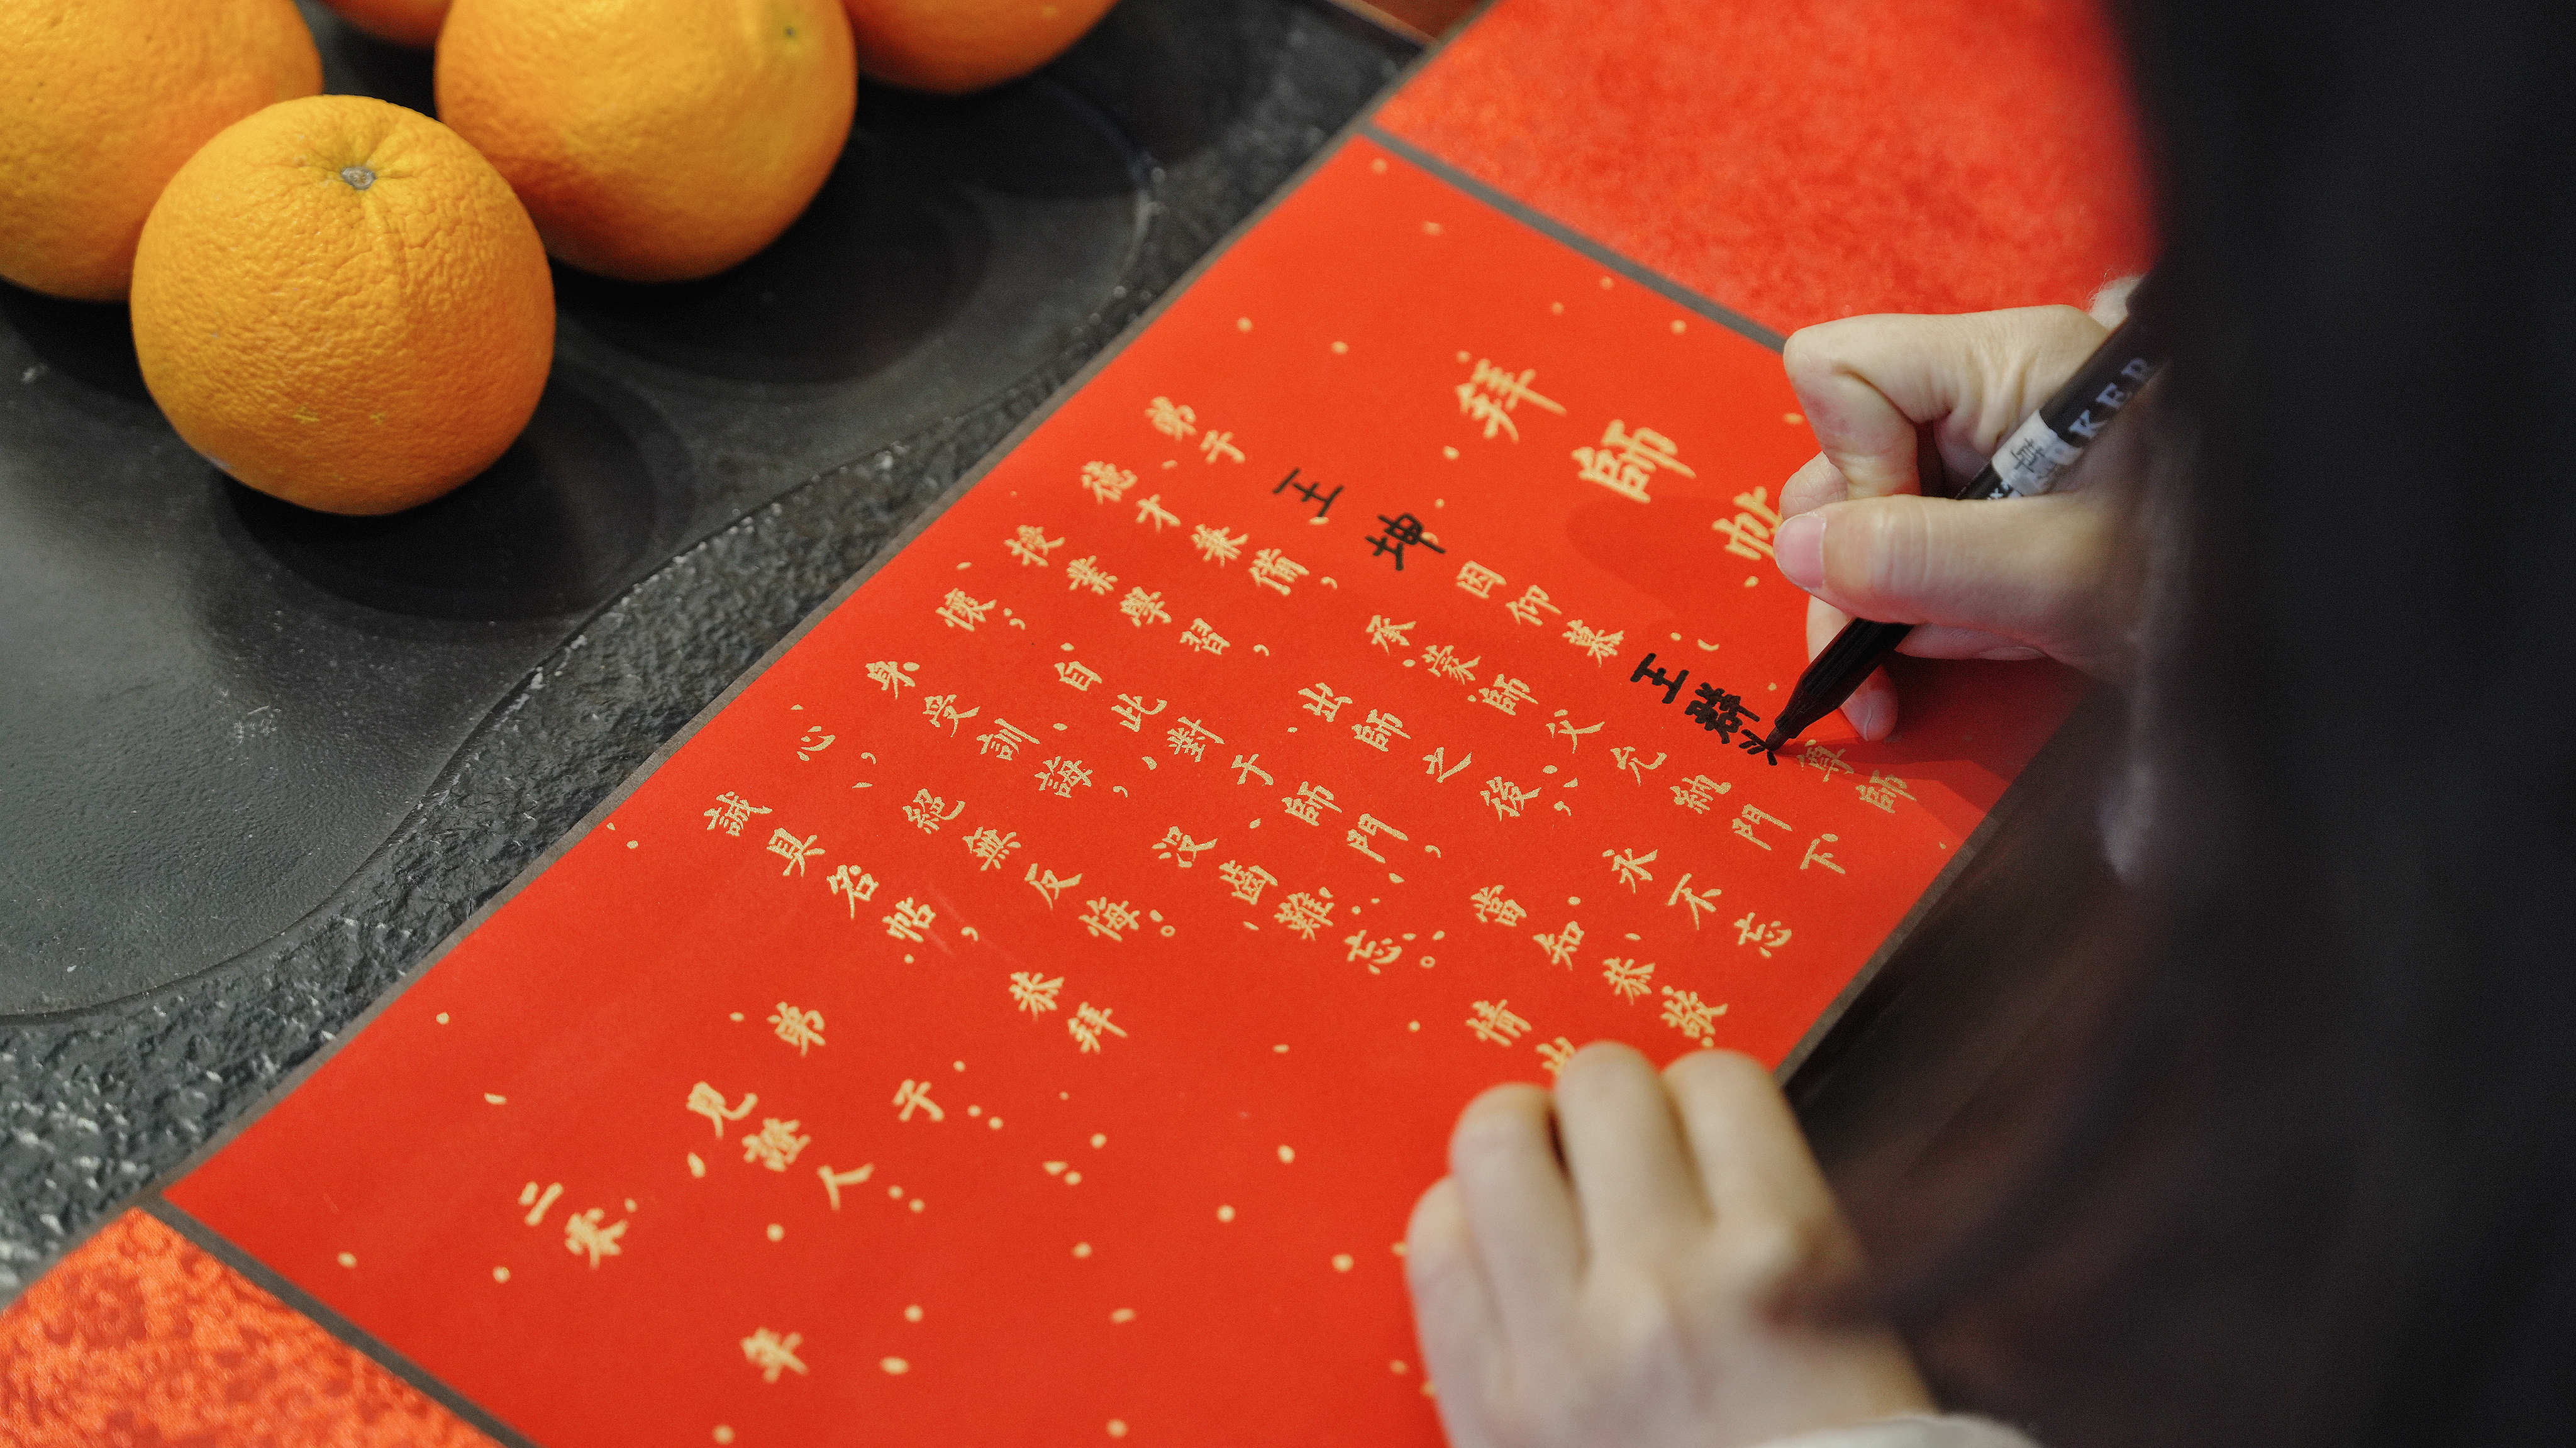 拜師帖
弟子王坤因仰慕王群 尊師
德才兼備,承蒙師父允納門下
授業學習,出師之後,永不忘
懷;自此對于師門,當知恭敬
身受訓誨,没齒難忘。情出
心,絕無反悔。
誠具名帖,恭拜
弟子:
見證人:
二零 年